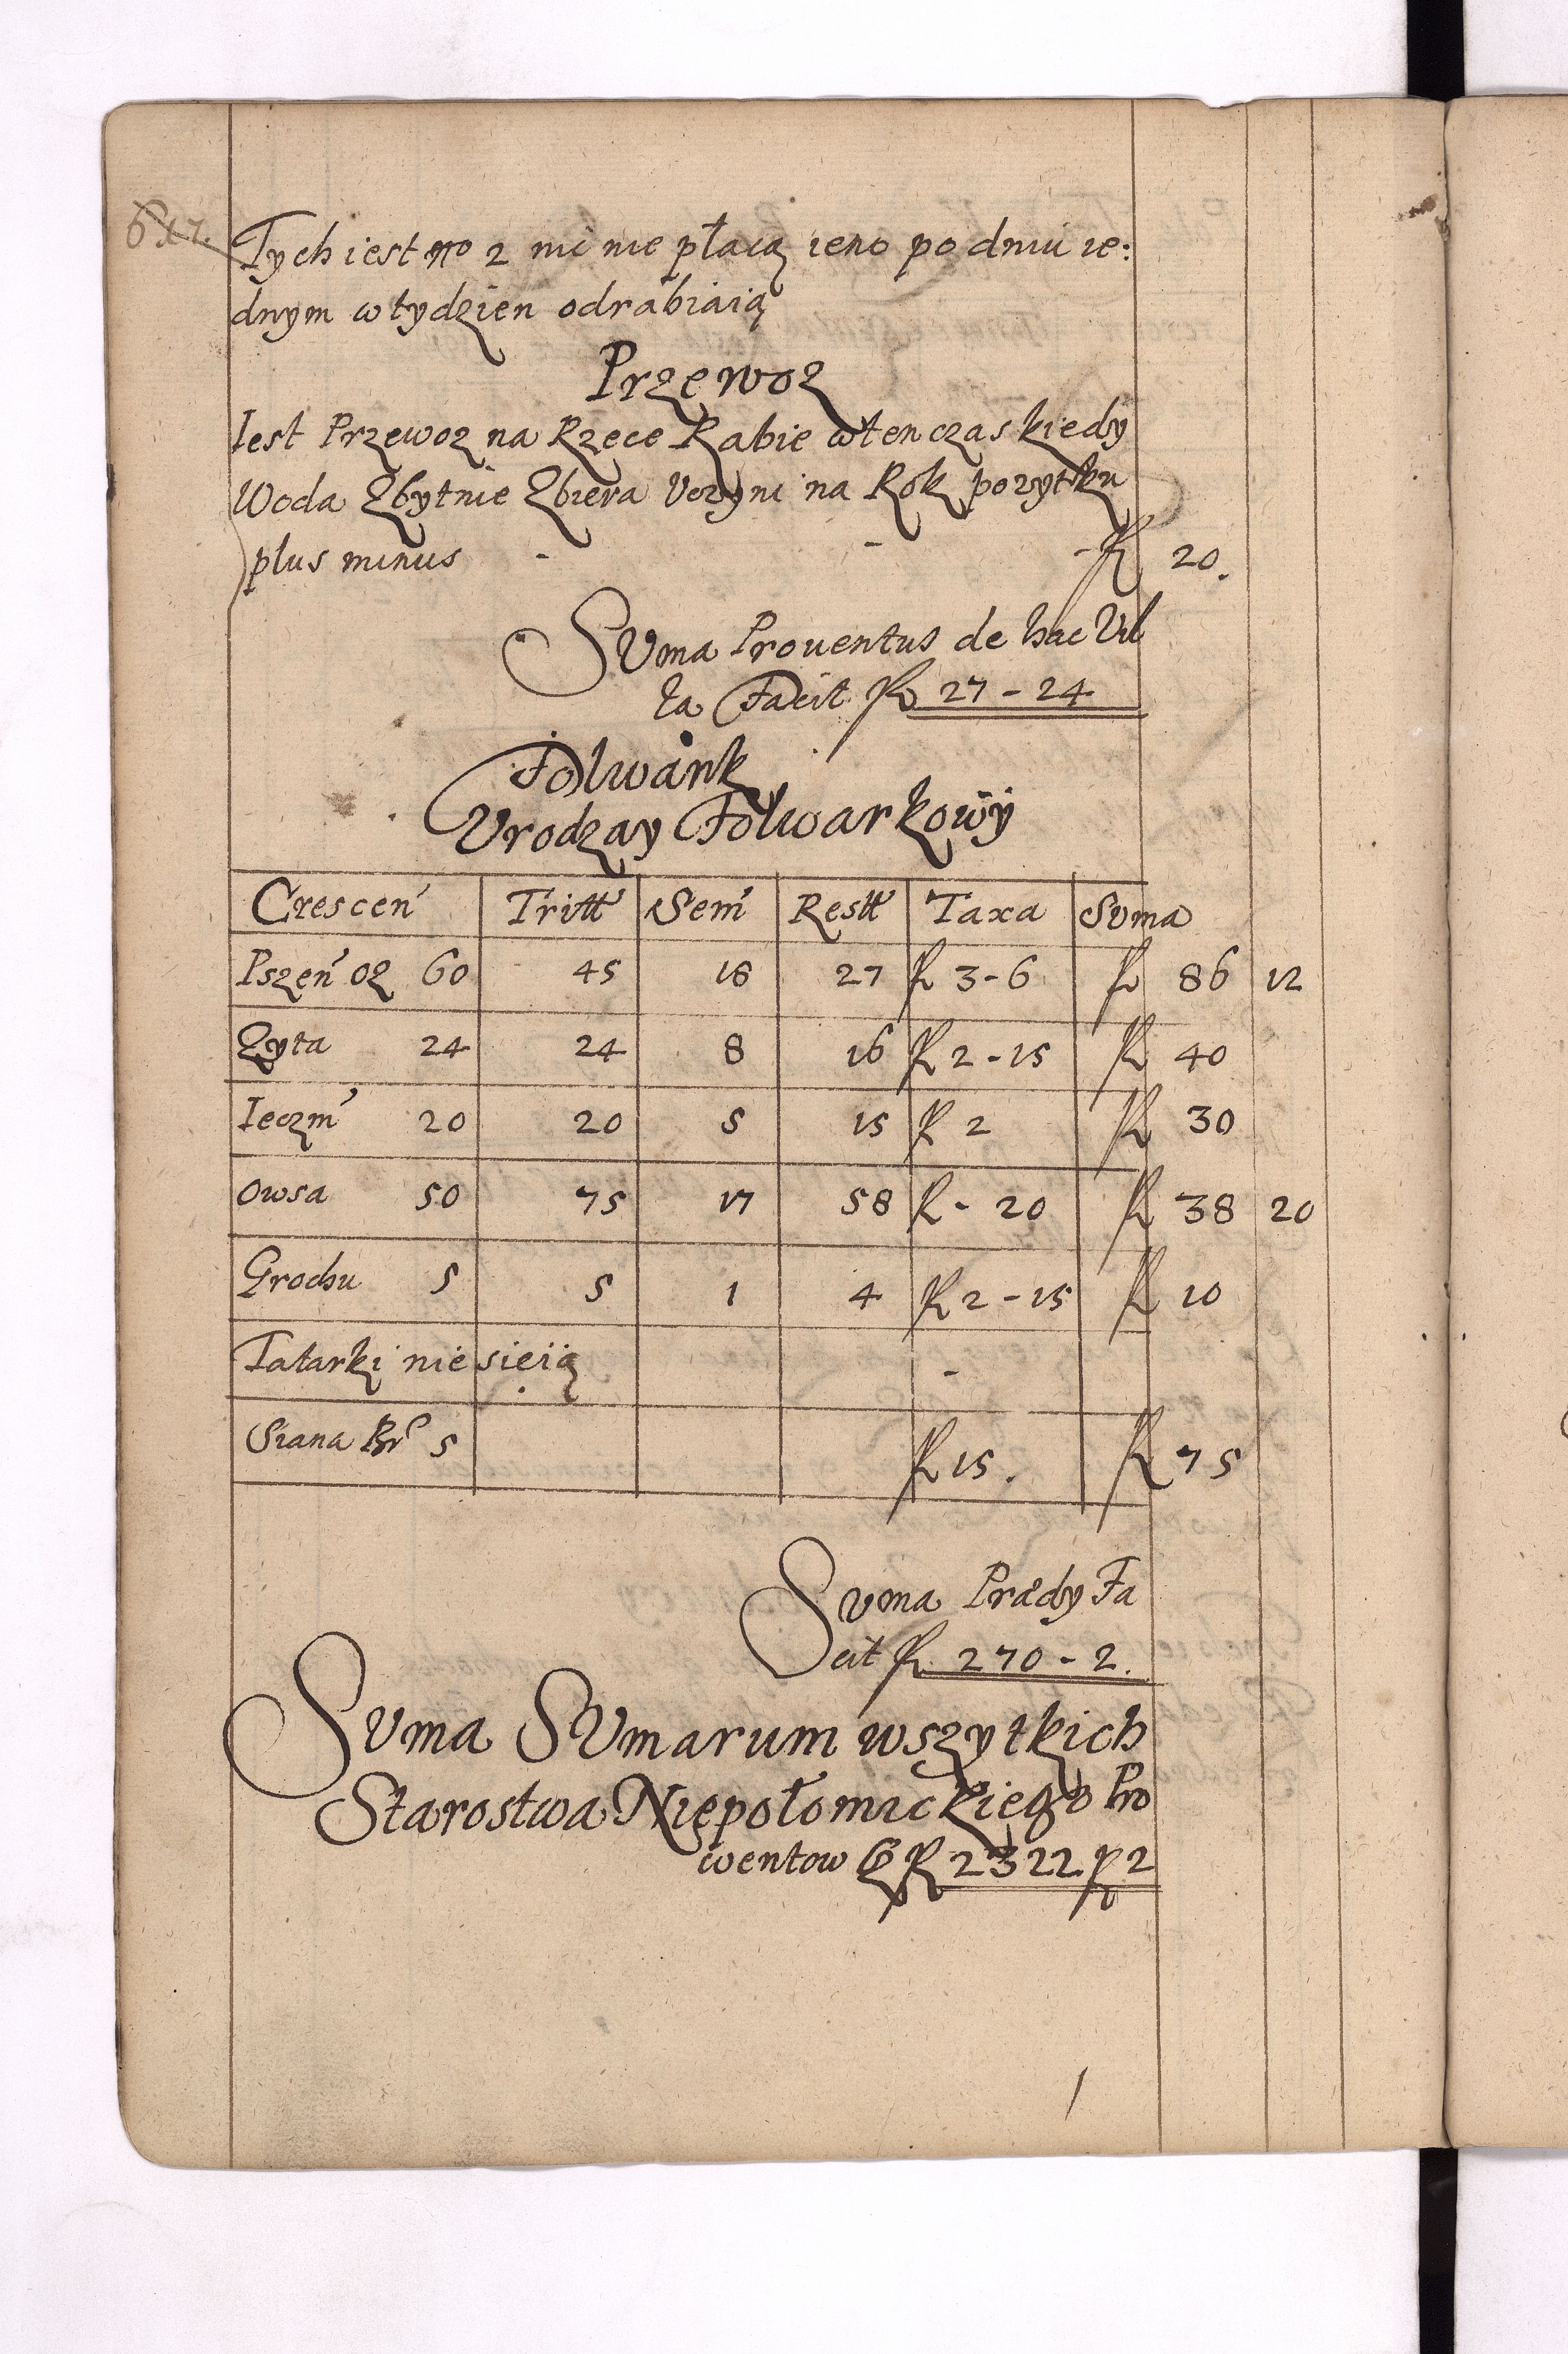 617.
Tych iest nro 2 nic nie płacą ieno po dniu ie:
dnym w tydzien odrabiaią
Przewoz
Iest Przewoz na Rzece Rabie wtenczas kiedy
Woda Zbytnie Zbiera Vczyni na Rok pozytku
plus minus - - - fl 20.
Suma Prouentus de hac Vil
la Facit fl 27 - 24
Folwark
Vrodzay Folwarkowÿ
Crescen Tritt Sem Restt Taxa Suma
Pszen oz 60 45 18 27 fl 3-6 fl 86 12
Zyta 24 24 8 16 fl 2-15 fl 40
Ieczm 20 20 5 15 fl 2 fl 30
Owsa 50 75 17 58 fl - 20 fl 38 20
Grochu 5 5 1 4 fl 2-15 fl 10
Tatarki nie sieią -
Siana Br 5 fl 15. fl 75
Suma Prædÿ Fa
cit fl 270 - 2.
Suma Sumarum wszytkich
Starostwa Niepołomickiego Pro
wentow fl 2322 2